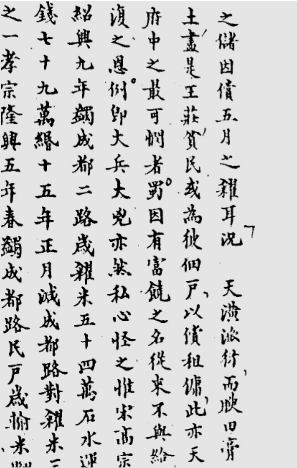 之儲因償五月之糴耳況　天潢派衍而腴田膏
土盡是王莊貧民或為彼佃戶以償租傭此亦天
府中之最可憫者蜀因有富饒之名從來不與給
復之恩例即大兵大兇亦然私心怪之惟宋高宗
紹興九年蠲成都二路歲糴米五十四萬石水運
錢七十九萬緡十五年正月減成都路對糴米三
之一孝宗隆興五年春蠲成都路民戶歲輸米